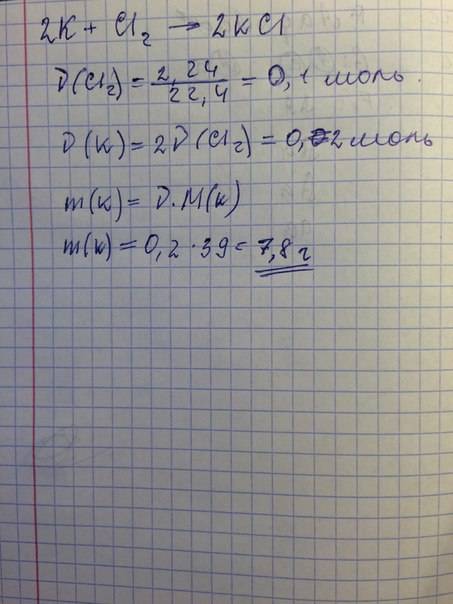 2K + Cl₂ → 2KCl
D(Cl₂) = 2,24/22,4 = 0,1 моль.
D(K) = 2D(Cl₂) = 0,2 моль
m(K) = D·M(K)
m(K) = 0,2·39 = 7,8 г